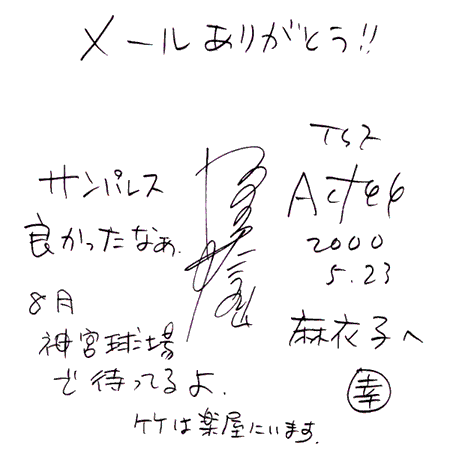 メールありがとう!!
サンパレス
良かったなぁ.
8月
神宮球場
で待ってるよ.
ケケは楽屋にいます.
TST
Act 66
2000
5.23
麻衣子へ
幸